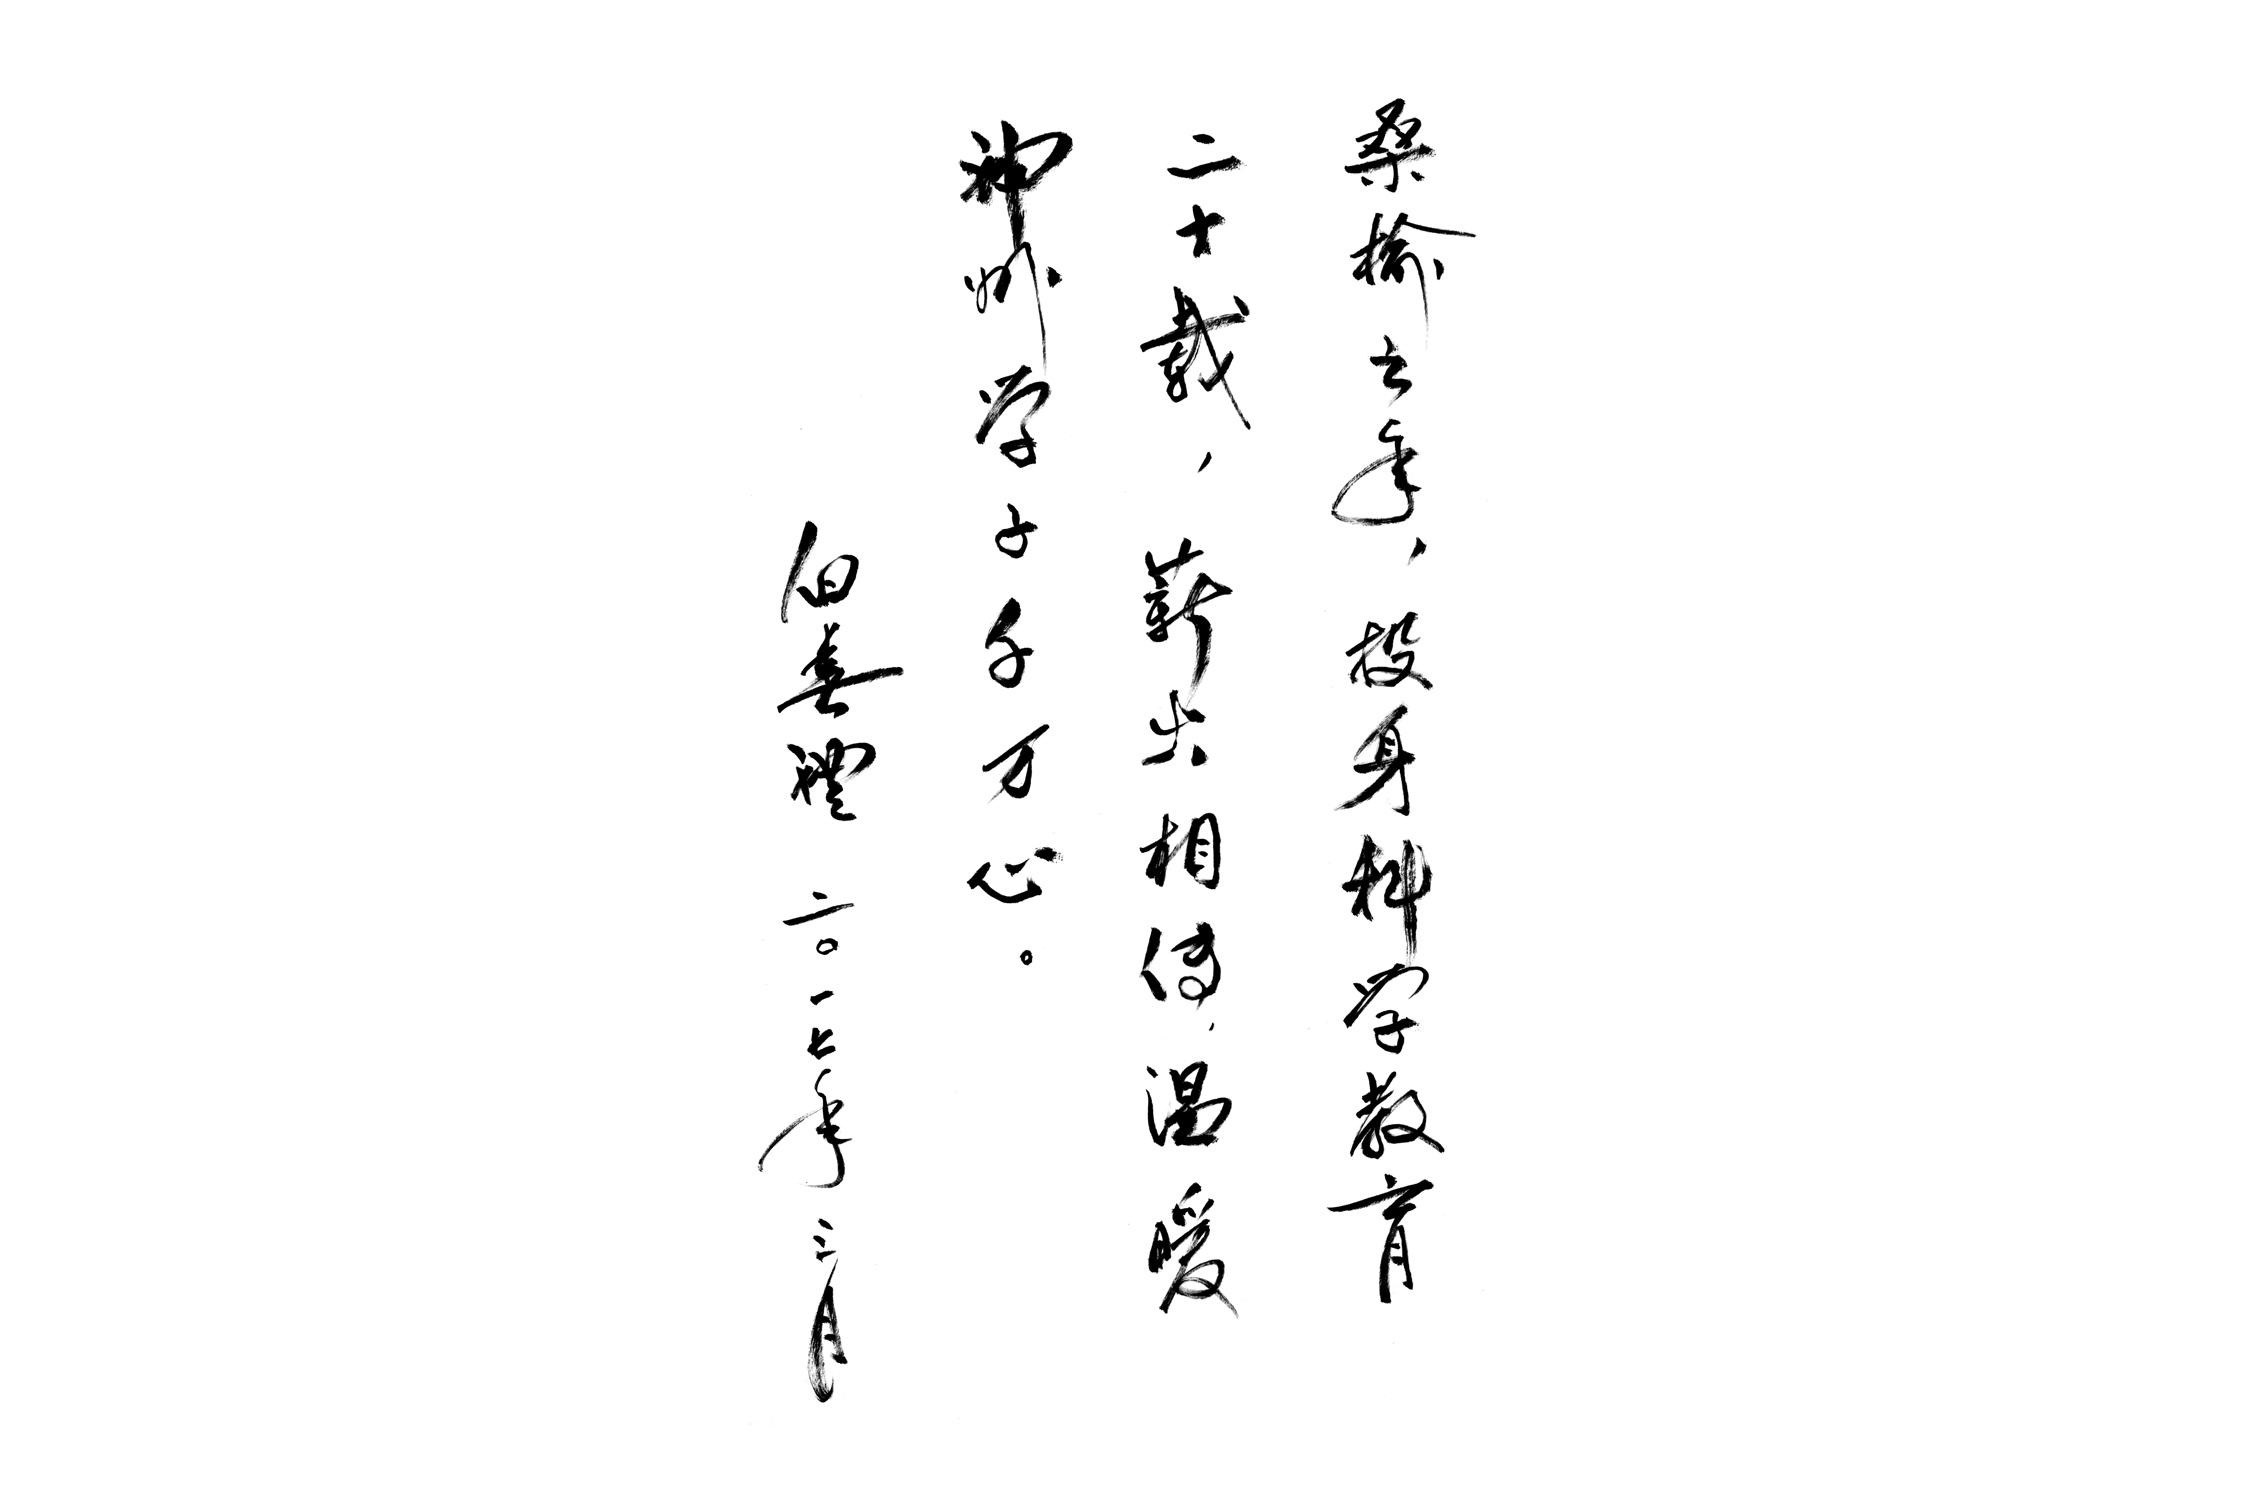 桑榆之年，投身科学教育
二十载，薪火相传，温暖
神州学子千万心。
白春礼 二〇一七年三月